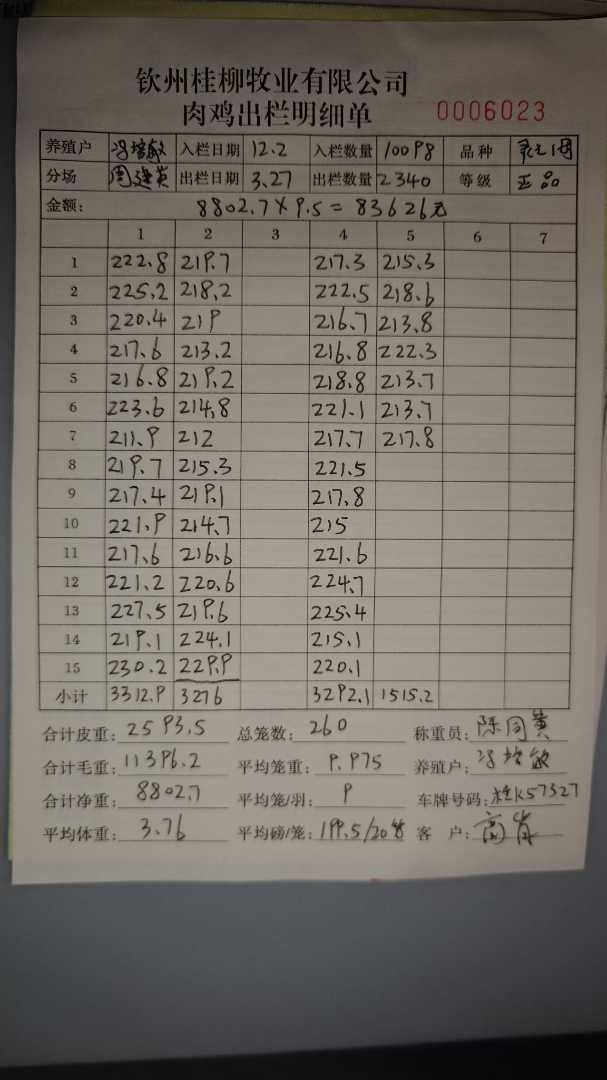 钦州桂柳牧业有限公司
肉鸡出栏明细单 0006023
养殖户 冯培敏 入栏日期 12.2 入栏数量 10098 品种
分场 出栏日期 3.27 出栏数量 2340 等级 正品
金额: 8802.7×9.5=83626元
1 2 3 4 5 6 7
1 222.8 219.7 217.3 215.3
2 225.2 218.2 222.5 218.6
3 220.4 219 216.7 213.8
4 217.6 213.2 216.8 222.3
5 216.8 219.2 218.8 213.7
6 223.6 214.8 221.1 213.7
7 211.9 212 217.7 217.8
8 219.7 215.3 221.5
9 217.4 219.1 217.8
10 221.9 214.7 215
11 217.6 216.6 221.6
12 221.2 220.6 224.7
13 227.5 219.6 225.4
14 219.1 224.1 215.1
15 230.2 229.9 220.1
小计 3312.9 3276 3292.1 1515.2
合计皮重: 2593.5 总笼数: 260 称重员: 陈同黄
合计毛重: 11396.2 平均笼重: 9.975 养殖户: 冯培敏
合计净重: 8802.7 平均笼/羽: 9 车牌号码: 桂K57327
平均体重: 3.76 平均磅/笼: 199.5/20 客 户: